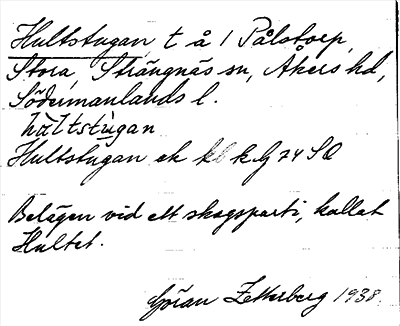 Hultstugan, t å 1 Pålstorp,
Stora, Strängnäs sn, Åkers hd,
Södermanlands l.
hùltstùgan
Hultstugan ek kG 74 SO
Belägen vid ett skogsparti, kallat
Hultet.
Göran Zetterberg 1938.